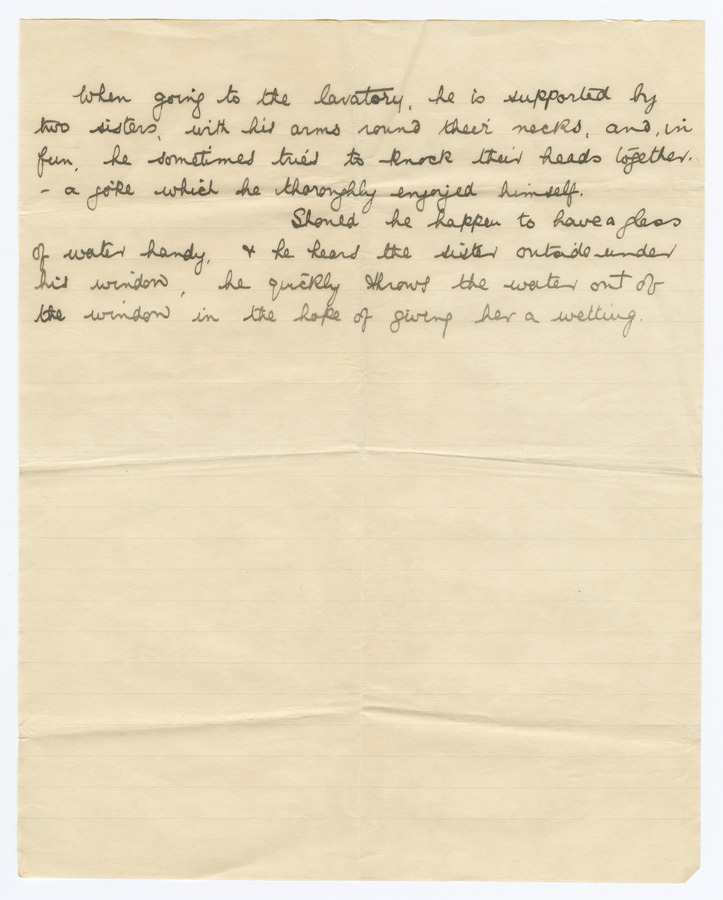 When going to the lavatory, he is supported by
two sisters, with his arms round their necks, and, in
fun, he sometimes tries to knock their heads together.
- a joke which he thoroughly enjoyed himself.
Should he happen to have a glass
of water handy, & he hears the sister outside under
his window, he quickly throws the water out of
the window in the hope of giving her a wetting.